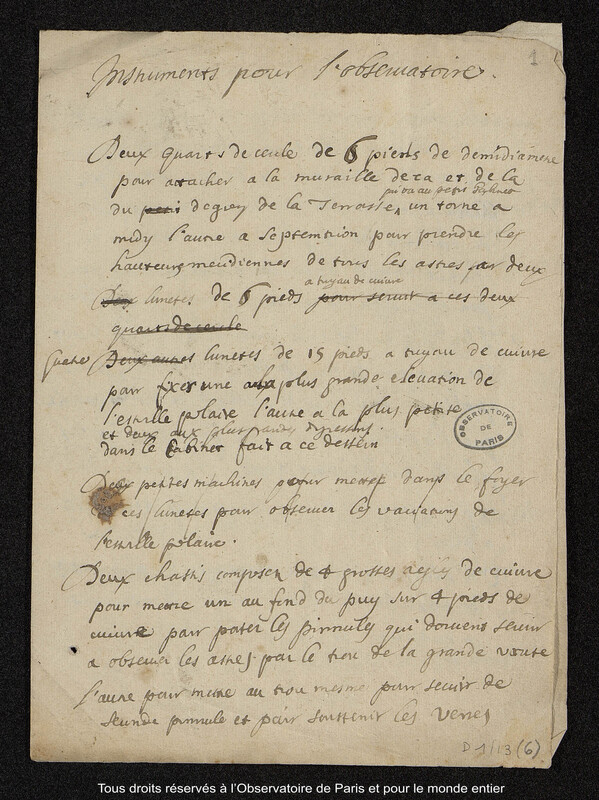 1
Instruments pour l'observatoire.
Deux quarts de cercle de 6 pieds de demidiametre
pour attacher a la muraille de ca et de la
qui va au petit
du peti degrez de la Terrasse, un torné a
midy l'autre a septemtrion pour prendre les
hauteurs meridiennes de tous les astres par deux
a tuyau de cuivre
Deux lunetes de 6 pieds pour servir a ces deux
quarts de cercle
Quatre Deux autres lunetes de 15 pieds a tuyau de cuivre
pour fixer une a la plus grande elevation de
l'estoille polaire l'autre a la plus petite
et deux aux plus grandes digressions
dans le Cabinet fait a ce dessein
Deux petites machines pour metre dans le foyer
ces lunetes pour observer les variations de
l'estoille polaire.
Deux chassis composez de 4 grosses regles de cuivre
pour metre un au fond du puy sur 4 pieds de
cuivre pour porter les pinnules qui doivent servir
a observer les astres par le trou de la grande voute
l'autre pour metre au trou mesme pour servir de
seconde pinnule et pour soutenir les verres
OBSERVATOIRE DE PARIS
D 1/13 (6)
Tous droits réservés à l'Observatoire de Paris et pour le monde entier